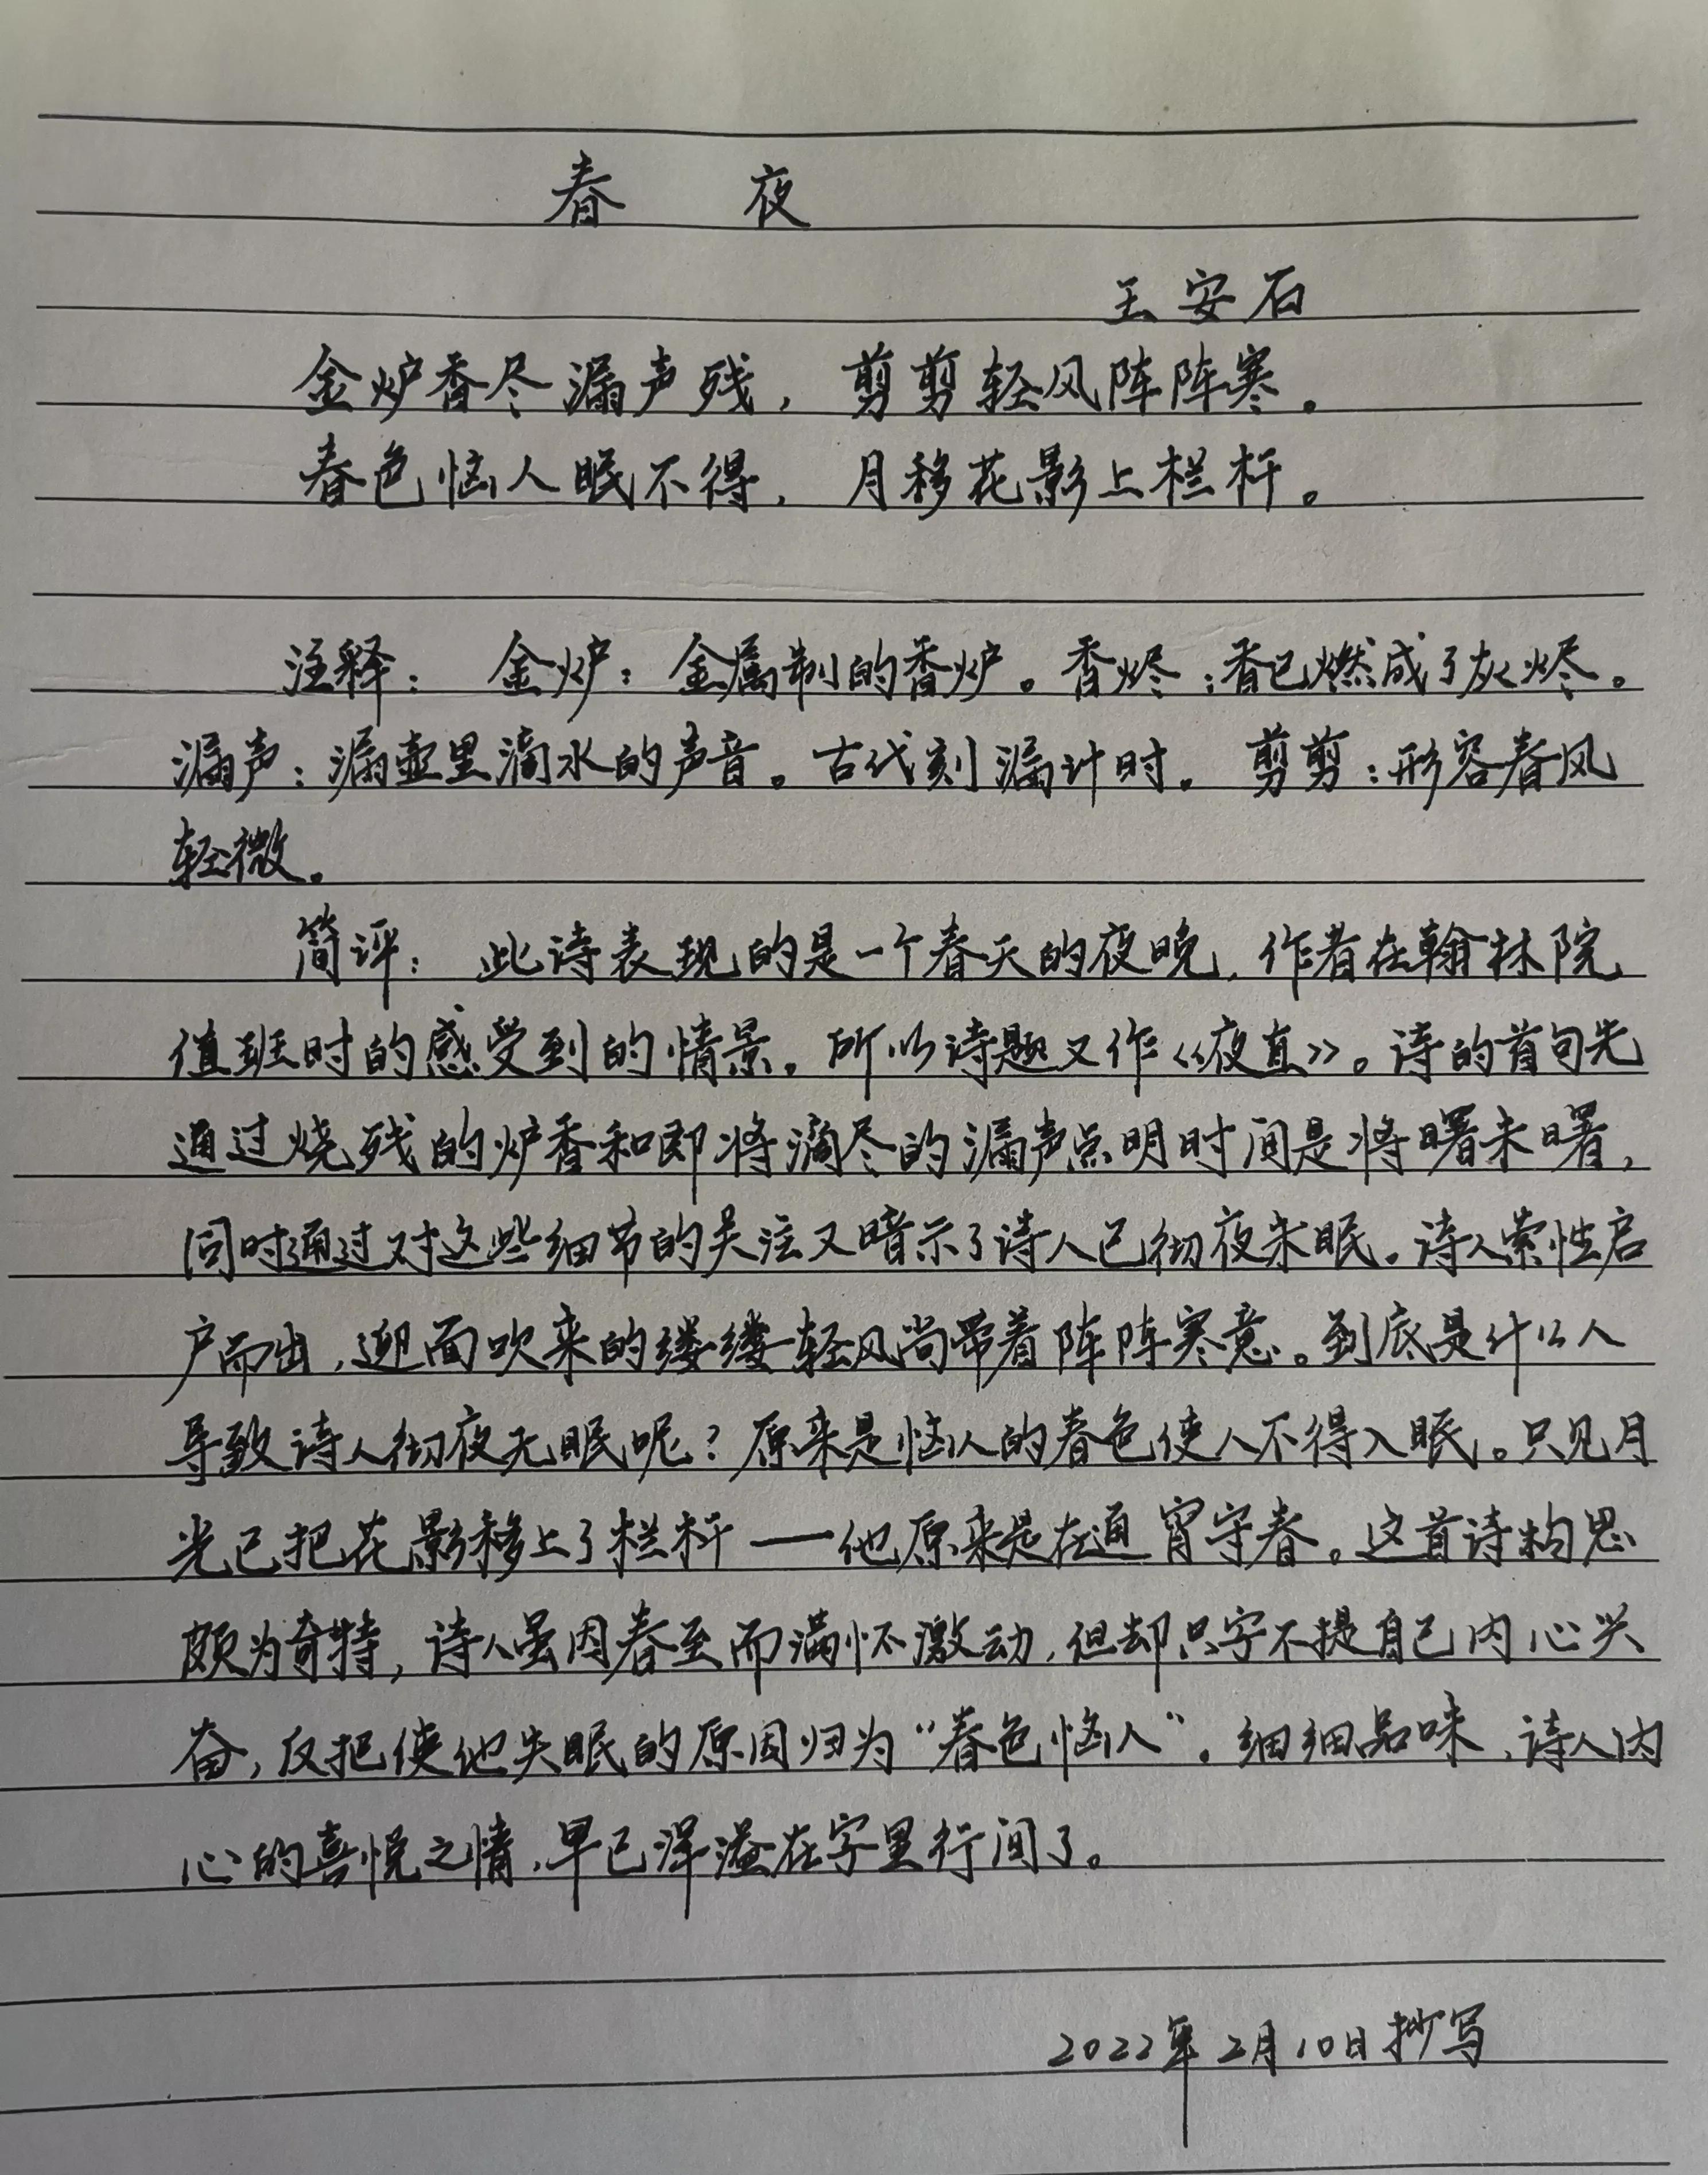 春 夜
王安石
金炉香尽漏声残，剪剪轻风阵阵寒。
春色恼人眠不得，月移花影上栏杆。
注释： 金炉：金属制的香炉。香烬：香已燃成了灰烬。
漏声：漏壶里滴水的声音。古代刻漏计时。 剪剪：形容春风
轻微。
简评： 此诗表现的是一个春天的夜晚，作者在翰林院
值班时的感受到的情景。所以诗题又作《夜直》。诗的首句先
通过烧残的炉香和即将滴尽的漏声点明时间是将曙未曙，
同时通过对这些细节的关注又暗示了诗人已彻夜未眠。诗人索性启
户而出，迎面吹来的缕缕轻风尚带着阵阵寒意。到底是什么人
导致诗人彻夜无眠呢？原来是恼人的春色使人不得入眠。只见月
光已把花影移上了栏杆——他原来是在通宵守春。这首诗构思
颇为奇特，诗人虽因春至而满怀激动，但却只字不提自己内心兴
奋，反把使他失眠的原因归为“春色恼人”。细细品味，诗人内
心的喜悦之情，早已洋溢在字里行间了。
2022年2月10日抄写